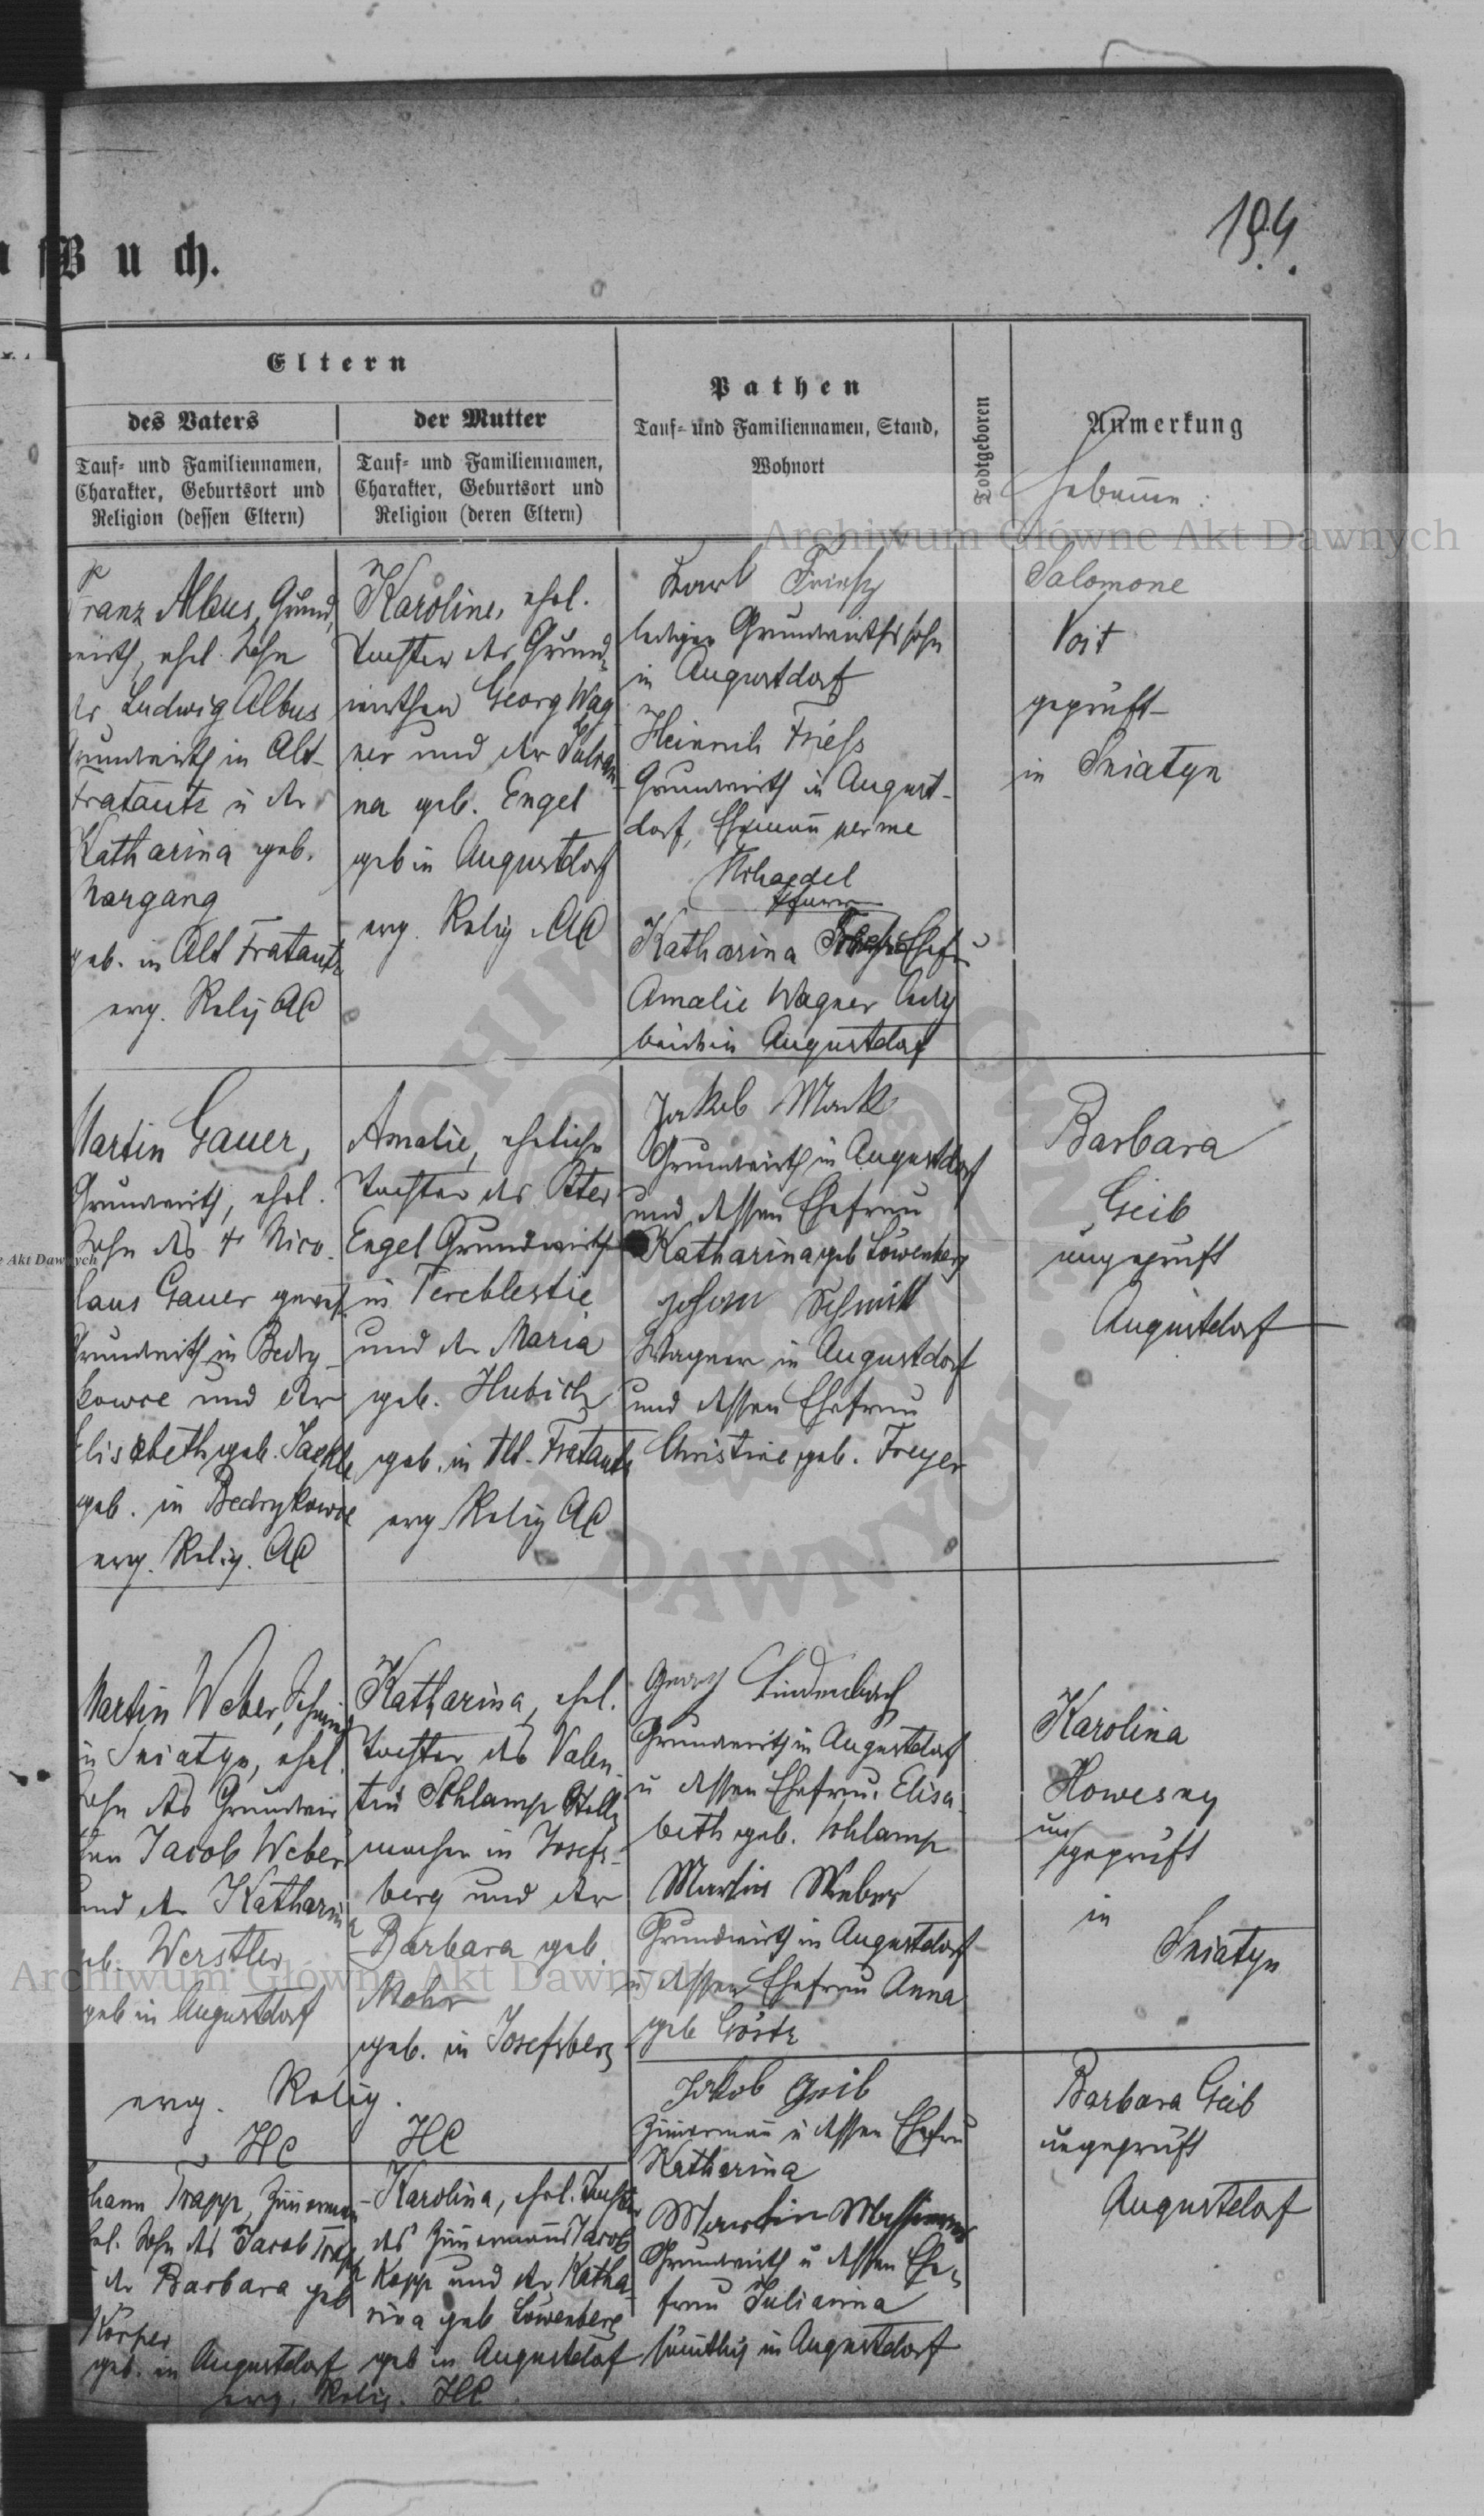 Buch.
194.
Eltern
des Vaters
Tauf- und Familiennamen,
Charakter, Geburtsort und
Religion (dessen Eltern)
der Mutter
Tauf- und Familiennamen,
Charakter, Geburtsort und
Religion (deren Eltern)
Pathen
Tauf- und Familiennamen, Stand,
Wohnort
Todtgeboren
Anmerkung
Hebamme:
Franz Albus, Grund-
wirth, ehel. Sohn
des Ludwig Albus
Grundwirth in Alt-
Fratautz u der
Katharina geb.
Nargang
geb. in Alt Fratautz
evg. Relig AC
Karoline, ehel.
Tochter des Grund-
wirthen Georg Wag
ner und der Julian-
na geb. Engel
geb in Augustdorf
evg. Relig. AC
Karl Friesz
lediger Grundwirthssohn
in Augustdorf
Heinrich Friess
Grundwirth in August-
dorf, Ehemann per me
Pfarrer
Katharina Ehefr
Amalie Wagner ledig
beide in Augustdorf
Salomone
Voit
geprüft
in Sniatyn
Martin Gauer,
Grundwirth, ehel.
Sohn des + Nico
laus Gauer gewes.
Grundwirth in Bedry-
kowce und der
Elisabeth geb. Jaekle
geb. in Bedrykowce
evg. Relig. AC
Amalie, eheliche
Tochter des Peter
Engel Grundwirth
in Tereblestie
und der Maria
geb. Hubich
geb. in Alt-Fratautz
evg Relig AC
Jakob Mank
Grundwirth in Augustdorf
und dessen Ehefrau
Katharina geb Löwenberg
Johann Schmitt
Wagner in Augustdorf
und dessen Ehefrau
Christine geb. Freyer
Barbara
Geib
ungeprüft
Augustdorf
Martin Weber, Schmied
in Sniatyn, ehel.
Sohn des Grundwir
then Jacob Weber
und der Katharina
geb. Werstler
geb in Augustdorf
evg. Relig.
HC
Katharina, ehel.
Tochter des Valen-
tin Schlamp Stell-
macher in Josefs-
berg und der
Barbara geb
Mohr
geb. in Josefsberg
HC
Georg Lindenbach
Grundwirth in Augustdorf
u dessen Ehefrau Elisa-
beth geb. Schlamp
Martin Weber
Grundwirth in Augustdorf
u dessen Ehefrau Anna
geb Göstz
Karolina
Howesny
un
geprüft
in
Sniatyn
Johann Trapp, Zimmermann
ehel. Sohn des Jacob Trapp
u der Barbara geb
Körper
geb. in Augustdorf
Karolina, ehel. Tochter
des Zimmermanns Jacob
Kopp und der Katha-
rina geb Löwenberg
geb in Augustdorf
evg. Relig. HC
Jakob Geib
Zimmermann u dessen Ehefrau
Katharina
Martin
Grundwirth u dessen Ehe-
frau Julianna
sämtlich in Augustdorf
Barbara Geib
ungeprüft
Augustdorf
Archiwum Główne Akt Dawnych
Archiwum Główne Akt Dawnych
Akt Dawnych